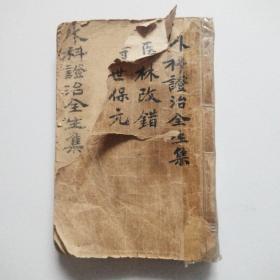 外科證治全生集
医林改錯
世保元
科證治全生集